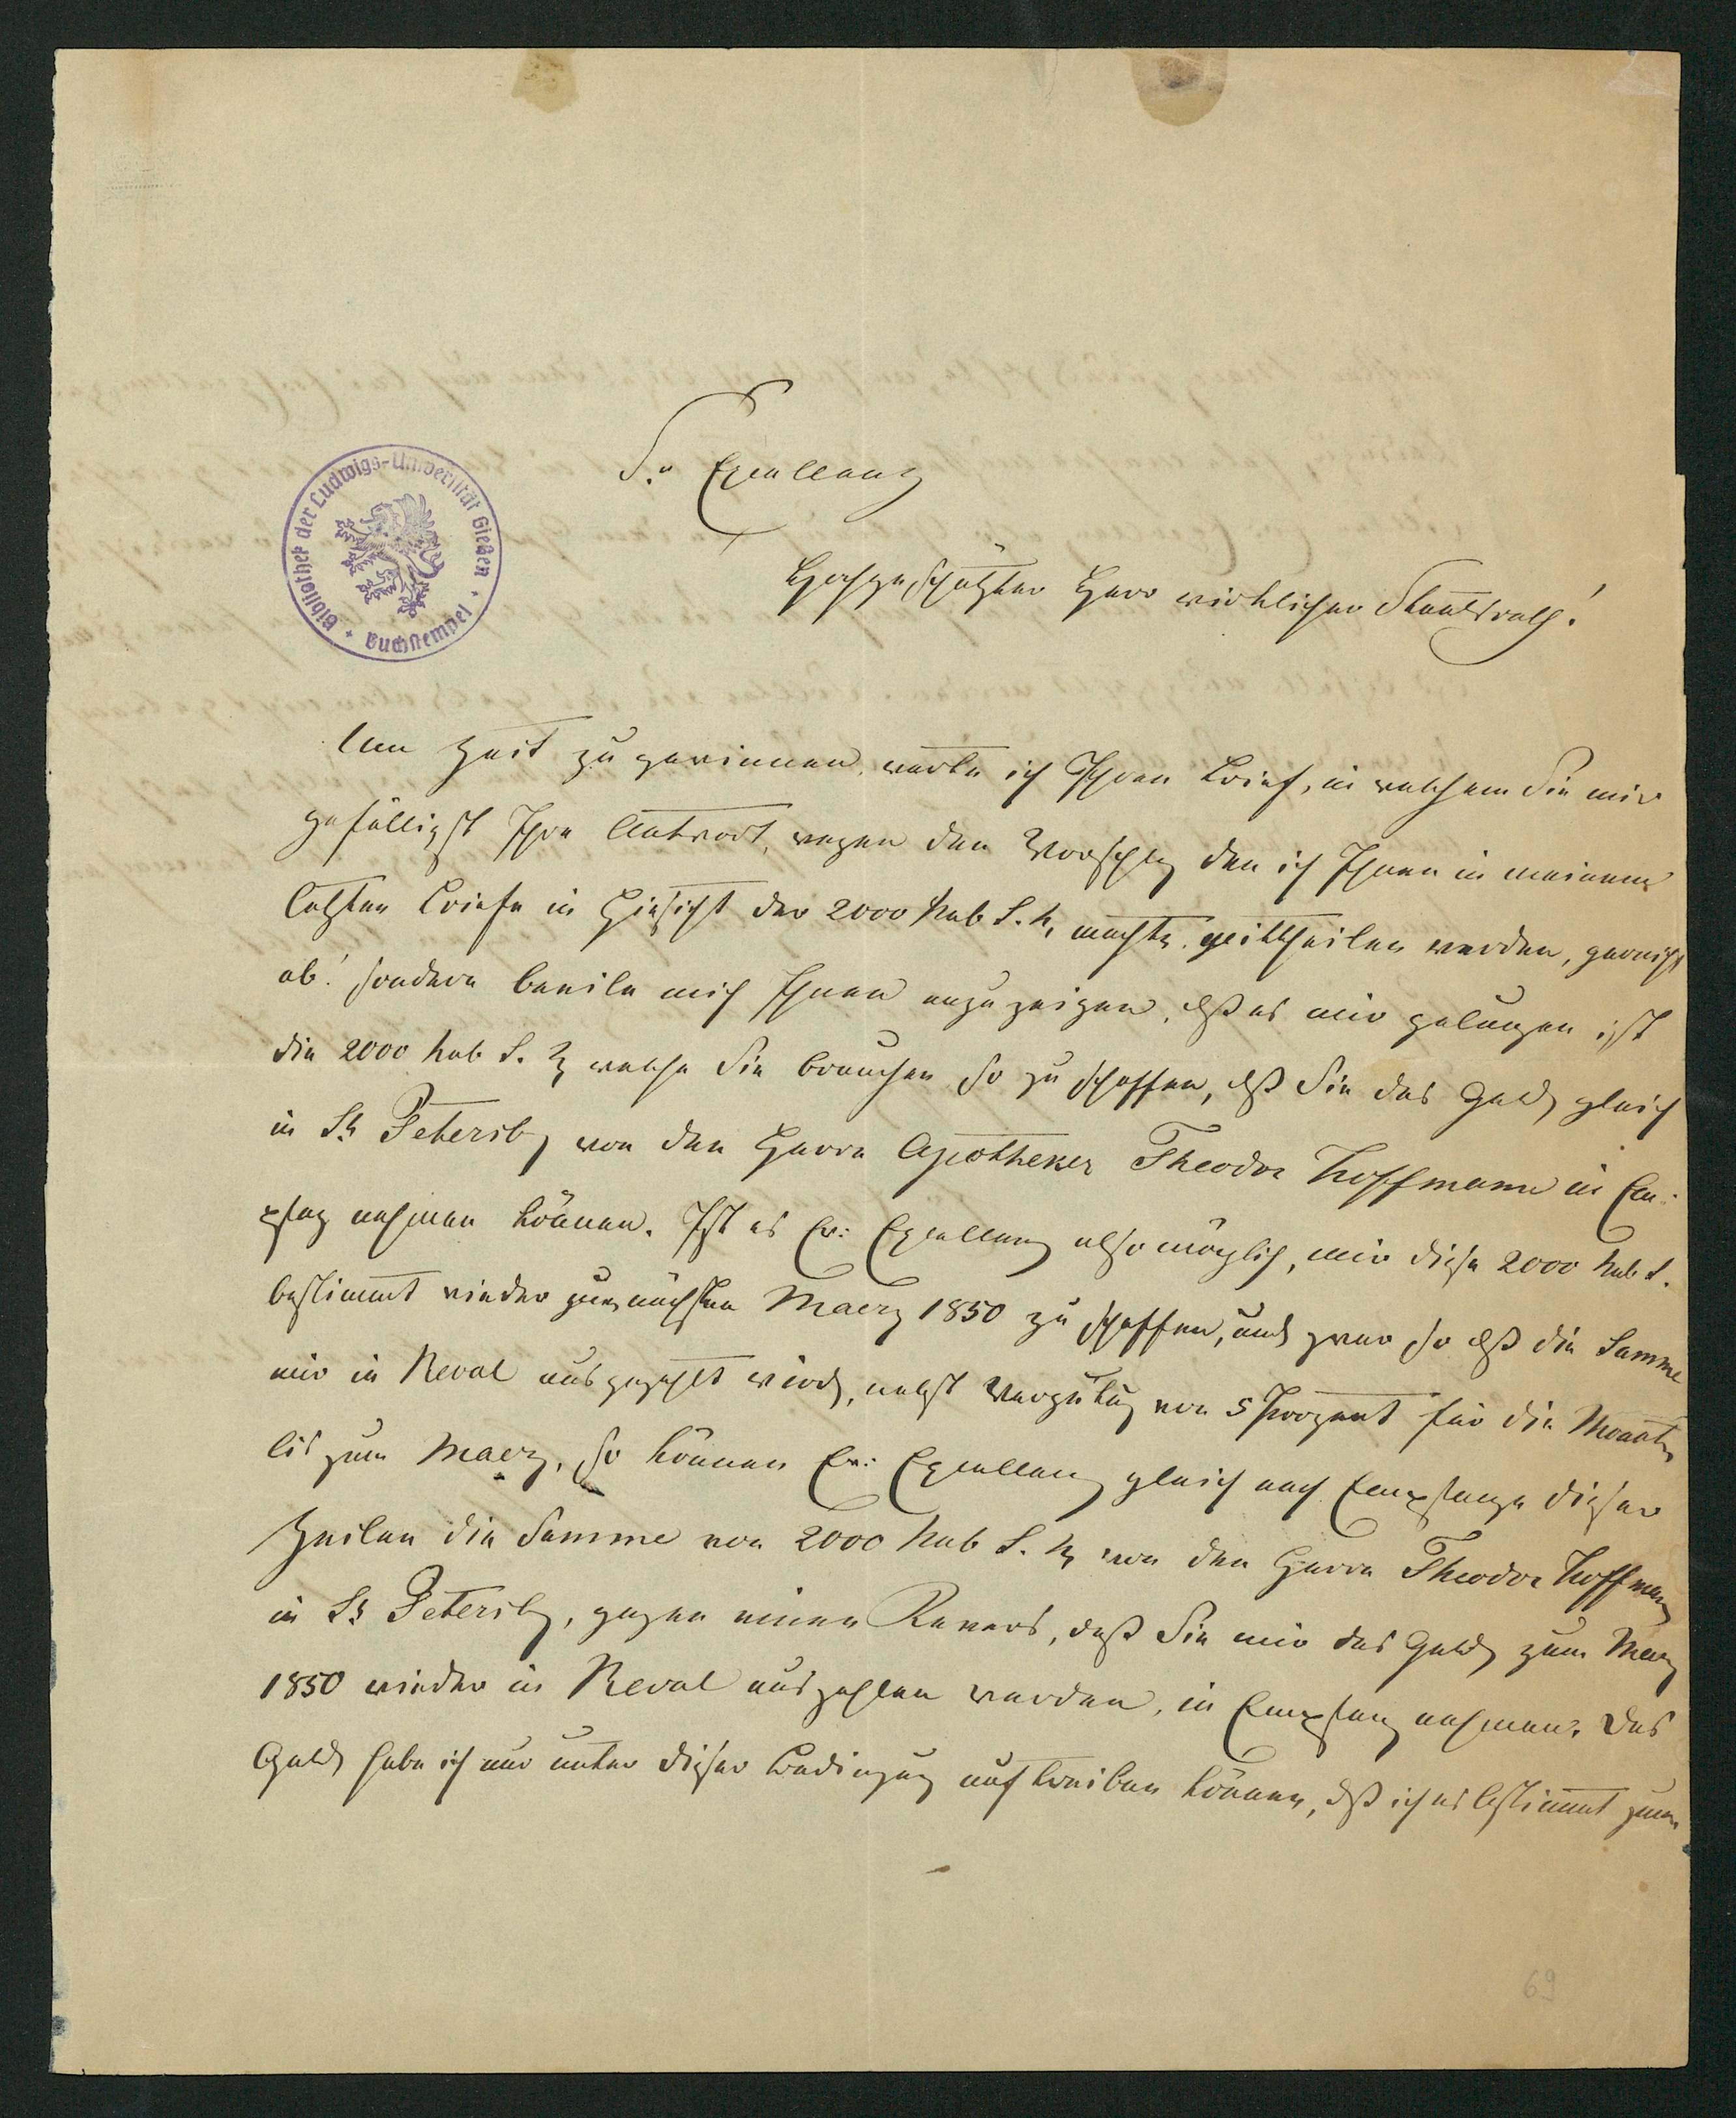 Bibliothek der Ludwigs-Universität Gießen
Buchstempel
Sr Excellenz
Hochgeschätzter Herr wirklicher Staatsrath!
Um Zeit zu gewinnen, warte ich Ihren Brief, in welchem Sie mir
gefälligst Ihre Antwort, wegen den Vorschlag den ich Ihnen in meinem
letzten Briefe in Hinsicht der 2000 Rub S. machte, mittheilen werden, gar nicht
ab! sondern beeile mich Ihnen anzuzeigen, dß es mir gelungen ist
die 2000 Rub S. welche Sie brauchen so zu schaffen, dß Sie das Geld gleich
in St Petersb von den Herrn Apotheker Theodor Hoffmann in Em-
pfag nehmen können. Ist es Ew: Excellenz also möglich, mir diese 2000 Rub S.
bestimmt wieder zum nächsten Maerz 1850 zu schaffen, und zwar so dß die Summe
mir in Reval ausgezahlt wird, nebst Vergütug von 5 Prozent für die Monate
bis zum Maerz, so können Ew: Excellenz gleich nach Empfange dieser
Zeilen die Summe von 2000 Rub S. von den Herrn Theodor Hoffmann
in St Petersb, gegen einen Revers, daß Sie mir das Geld zum Maerz
1850 wieder in Reval auszahlen werden, in Empfang nehmen. Das
Geld habe ich nur unter dieser Bedingug auftreiben können, dß ich es bestimmt zum
69